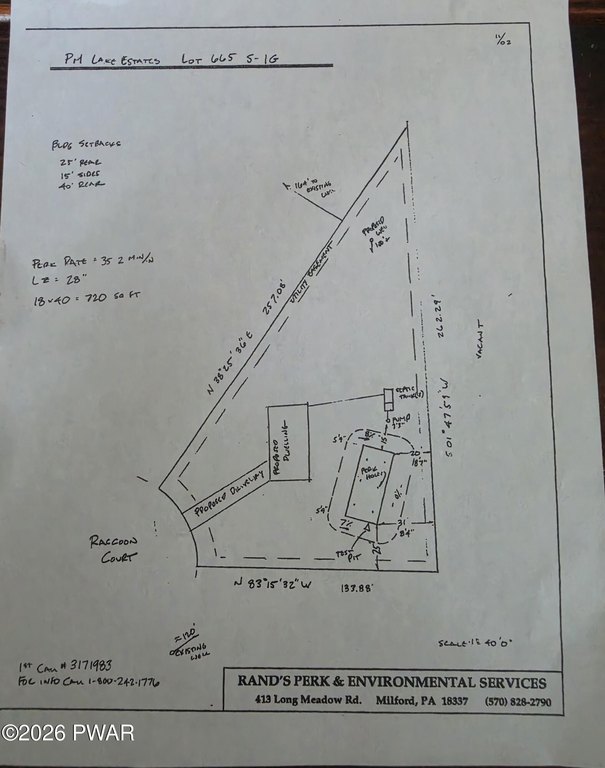 11/02
PM LAKE ESTATES LOT 665 S-1G
BLDG SETBACKS
25' REAR
15' SIDES
40' REAR
164' TO
EXISTING
WELL
PROPOSED
WELL
UTILITY EASEMENT
PERK RATE = 35.2 MIN/IN
LZ = 28"
18 x 40 = 720 SQ FT
257.08'
N 38° 25' 36" E
262.29'
S 01° 47' 59" W
VACANT
SEPTIC
TANK(S)
PUMP
PROPOSED
DWELLING
15'
5'9"
20
18'7"
PERK
HOLES
8%
PROPOSED DRIVEWAY
5'9"
7%
31'
8'4"
TEST
PIT
25'
RACCOON
COURT
N 83° 15' 32" W 133.88'
≈120'
EXISTING
WELL
SCALE 1" = 40'0"
1ST CALL # 3171983
FOR INFO CALL 1-800-242-1776
RAND'S PERK & ENVIRONMENTAL SERVICES
413 Long Meadow Rd. Milford, PA 18337 (570) 828-2790
©2026 PWAR